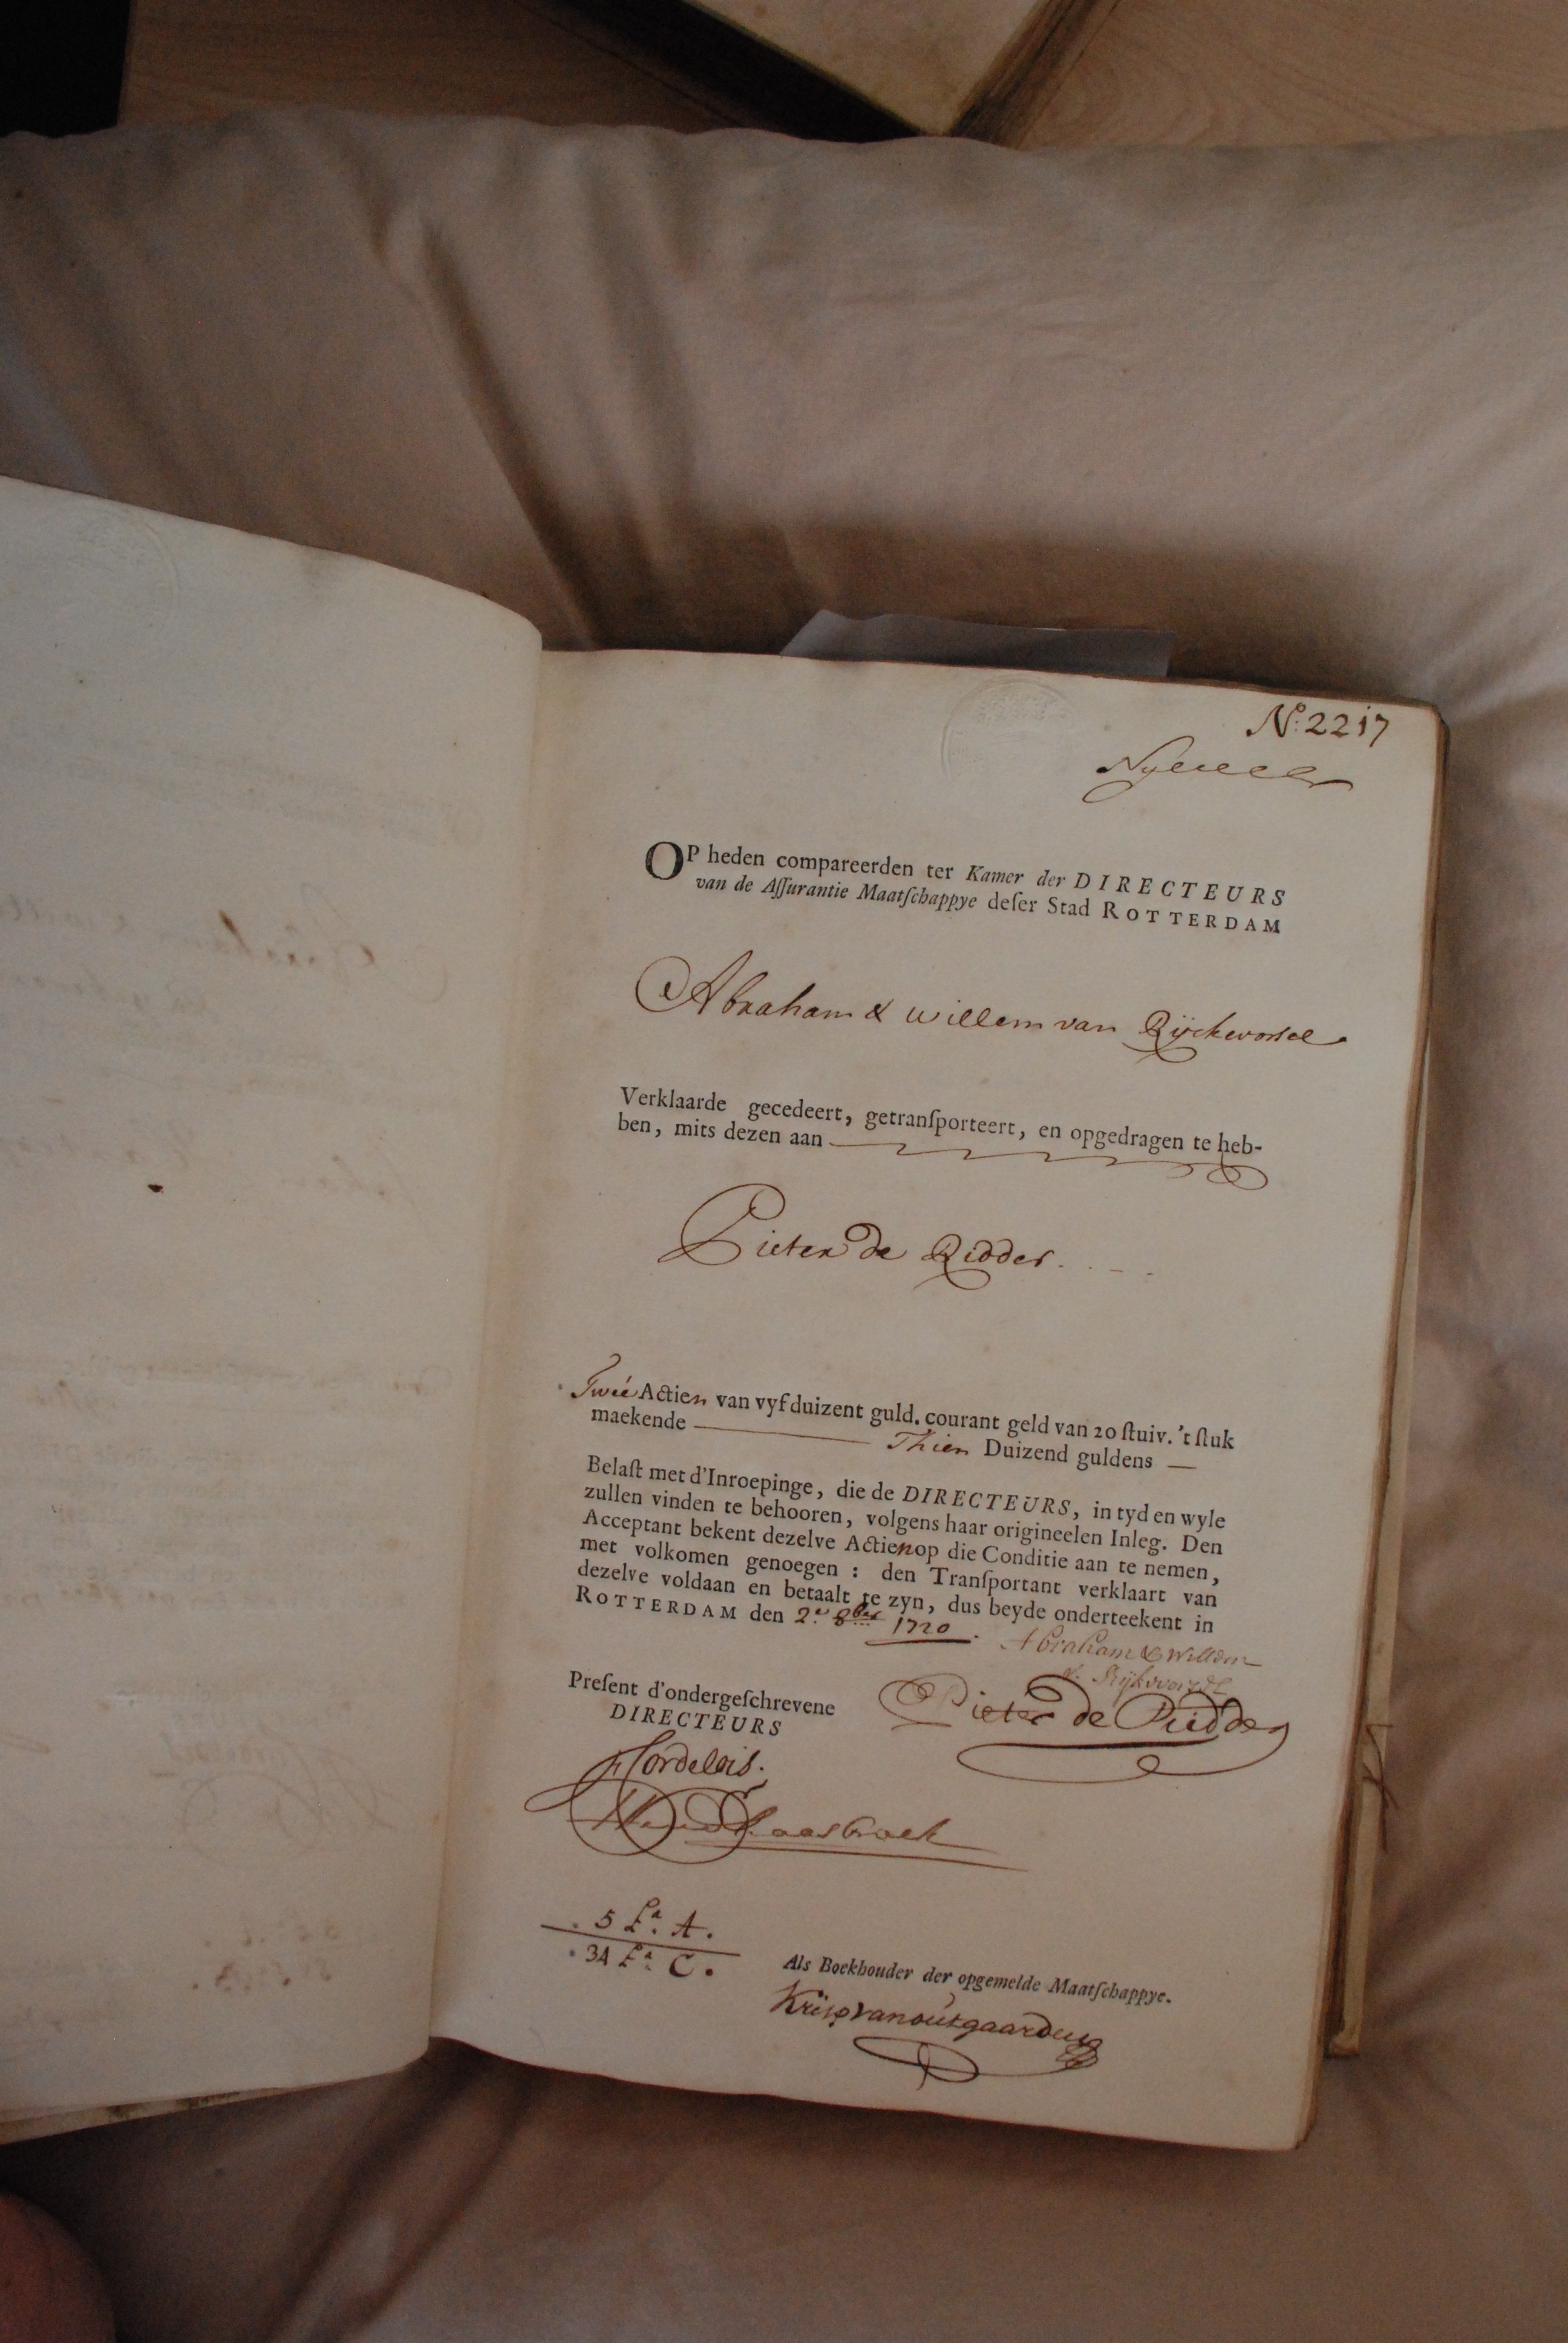 N.º 2217
OP heden compareerden ter Kamer der DIRECTEURS
van de Aſſurantie Maatſchappye deſer Stad ROTTERDAM
Abraham & willem van Rijckevorsel
Verklaarde gecedeert, getranſporteert, en opgedragen te heb-
ben, mits dezen aan
Pieter de Ridder
Tweé Actien van vyf duizent guld. courant geld van 20 ſtuiv. 't ſtuk
maekende Thien Duizend guldens
Belaſt met d'Inroepinge, die de DIRECTEURS, in tyd en wyle
zullen vinden te behooren, volgens haar origineelen Inleg. Den
Acceptant bekent dezelve Actien op die Conditie aan te nemen,
met volkomen genoegen : den Tranſportant verklaart van
dezelve voldaan en betaalt te zyn, dus beyde onderteekent in
ROTTERDAM den 2.e 8ber 1720.
Abraham & Willem
v. Rijckvorsel
Preſent d'ondergeſchrevene
DIRECTEURS
Pieter de Ridder
5 L.a A.
34 L.a C.
Als Boekhouder der opgemelde Maatſchappye.